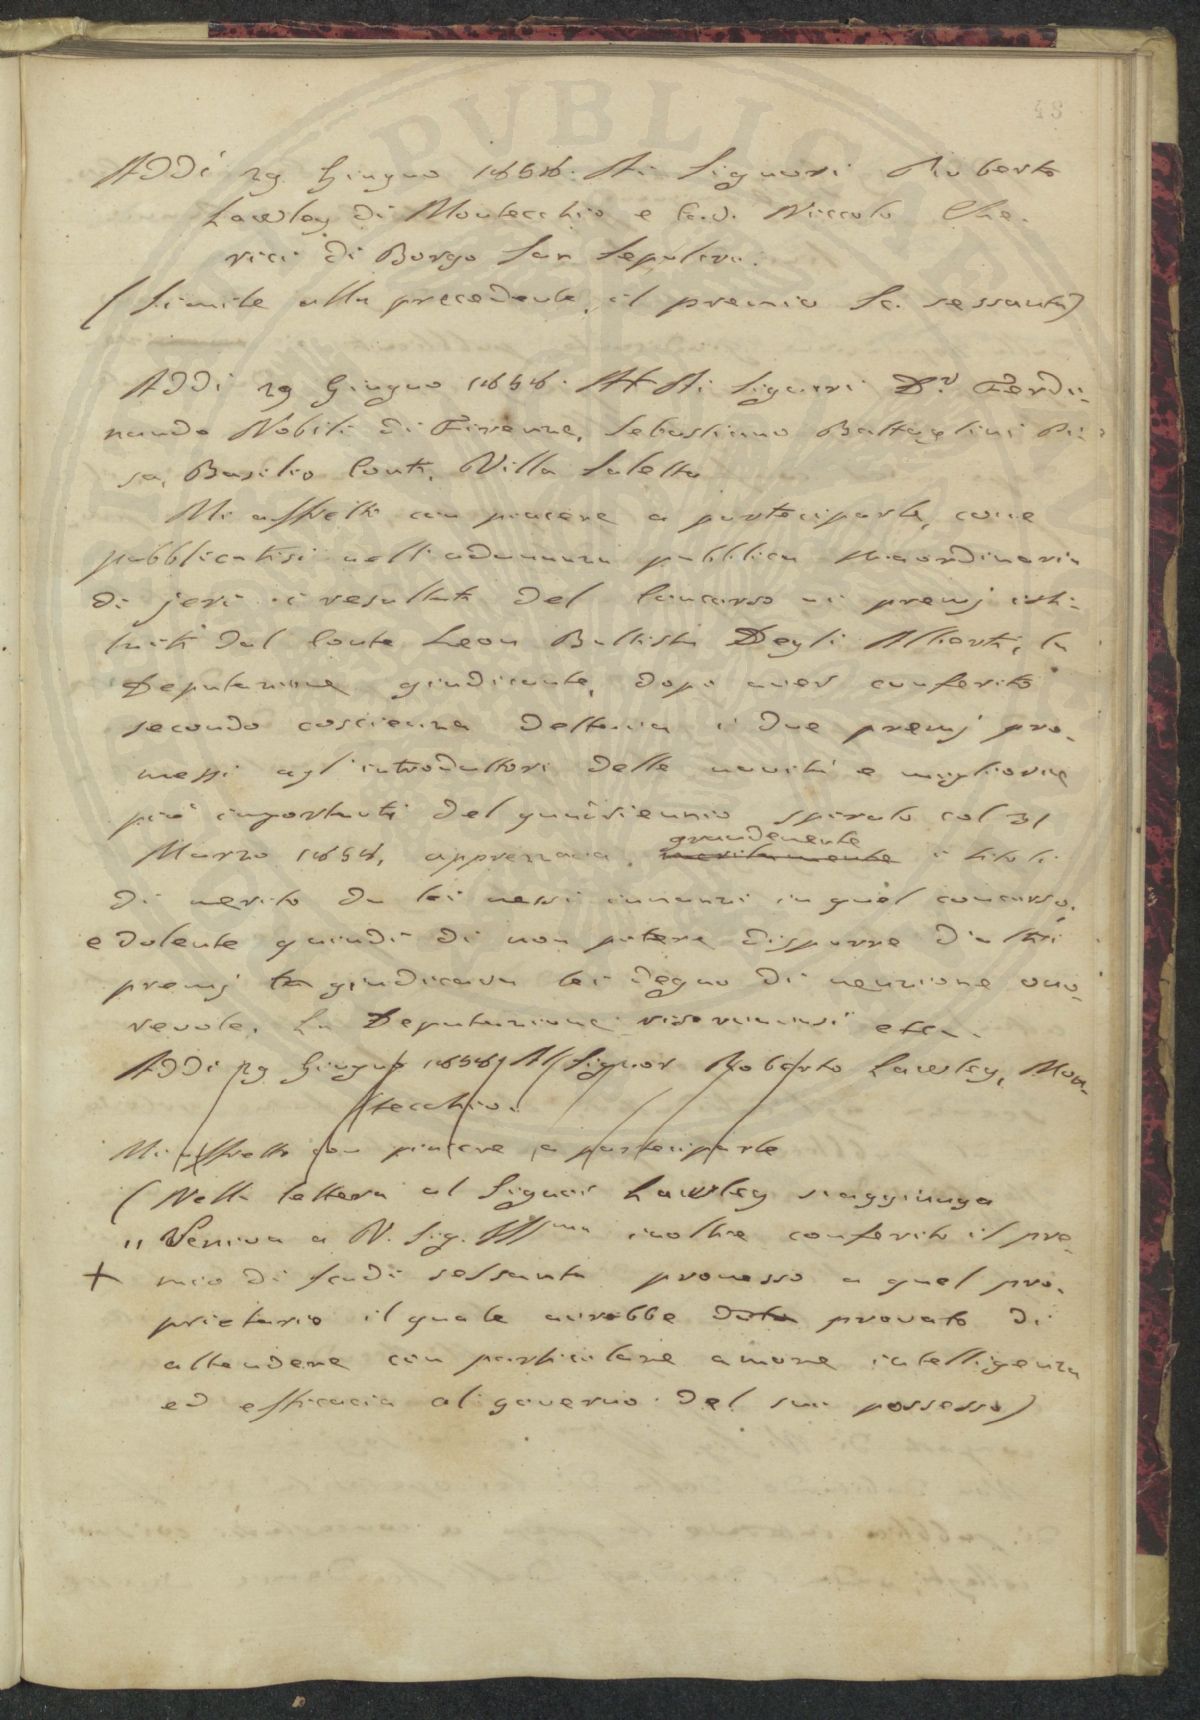 43
Addì 29 Giugno 1858. Ai Signori Roberto
Lawley di Montecchio e Cav. Niccolò Che-
rici di Borgo San Sepolcro.
(Simile alla precedente, il premio Sc. sessanta)
Addì 29 Giugno 1858. Ai Signori Dr. Ferdi-
nando Nobili di Firenze, Sebastiano Battaglini Pi-
sa, Basilio Conti, Villa Saletta
Mi affretto con piacere a parteciparle, come
pubblicatisi nell'adunanza pubblica straordinaria
di jeri i resultati del Concorso ai premj isti-
tuiti dal Conte Leon Battista Degli Alberti, la
Deputazione giudicante, dopo aver conferito
secondo coscienza dettava i due premj pro-
messi agl'introduttori delle novità e migliorie
più importanti del quadriennio spirato col 31
grandemente
Marzo 1858, apprezzava, meritamente i titoli
di merito da lei messi innanzi in quel concorso,
e dolente quindi di non potere disporre d'altri
premj giudicava lei degno di menzione ono-
revole. La Deputazione etca.
Addì 29 Giugno 1858. Al Signor Roberto Lawley, Mon-
tecchio.
Mi affretto con piacere a parteciparle
(Nella lettera al Signor Lawley si aggiunga
" Veniva a V. Sig. Ill.ma inoltre conferito il pre-
+ mio di scudi sessanta promesso a quel pro-
prietario il quale avrebbe dato provato di
attendere con particolare amore intelligenza
ed efficacia al governo del suo possesso)